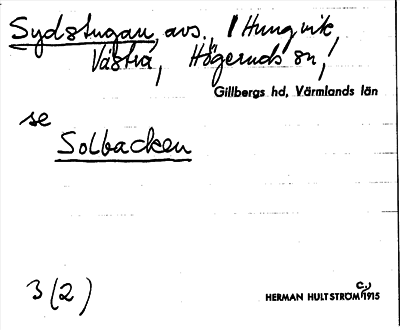 Sydstugan, avs., 1 Hungvik,
Västra, Högeruds sn,
Gillbergs hd, Värmlands län
se
Solbacken
3(2)
c.
HERMAN HULTSTRÖM/1915